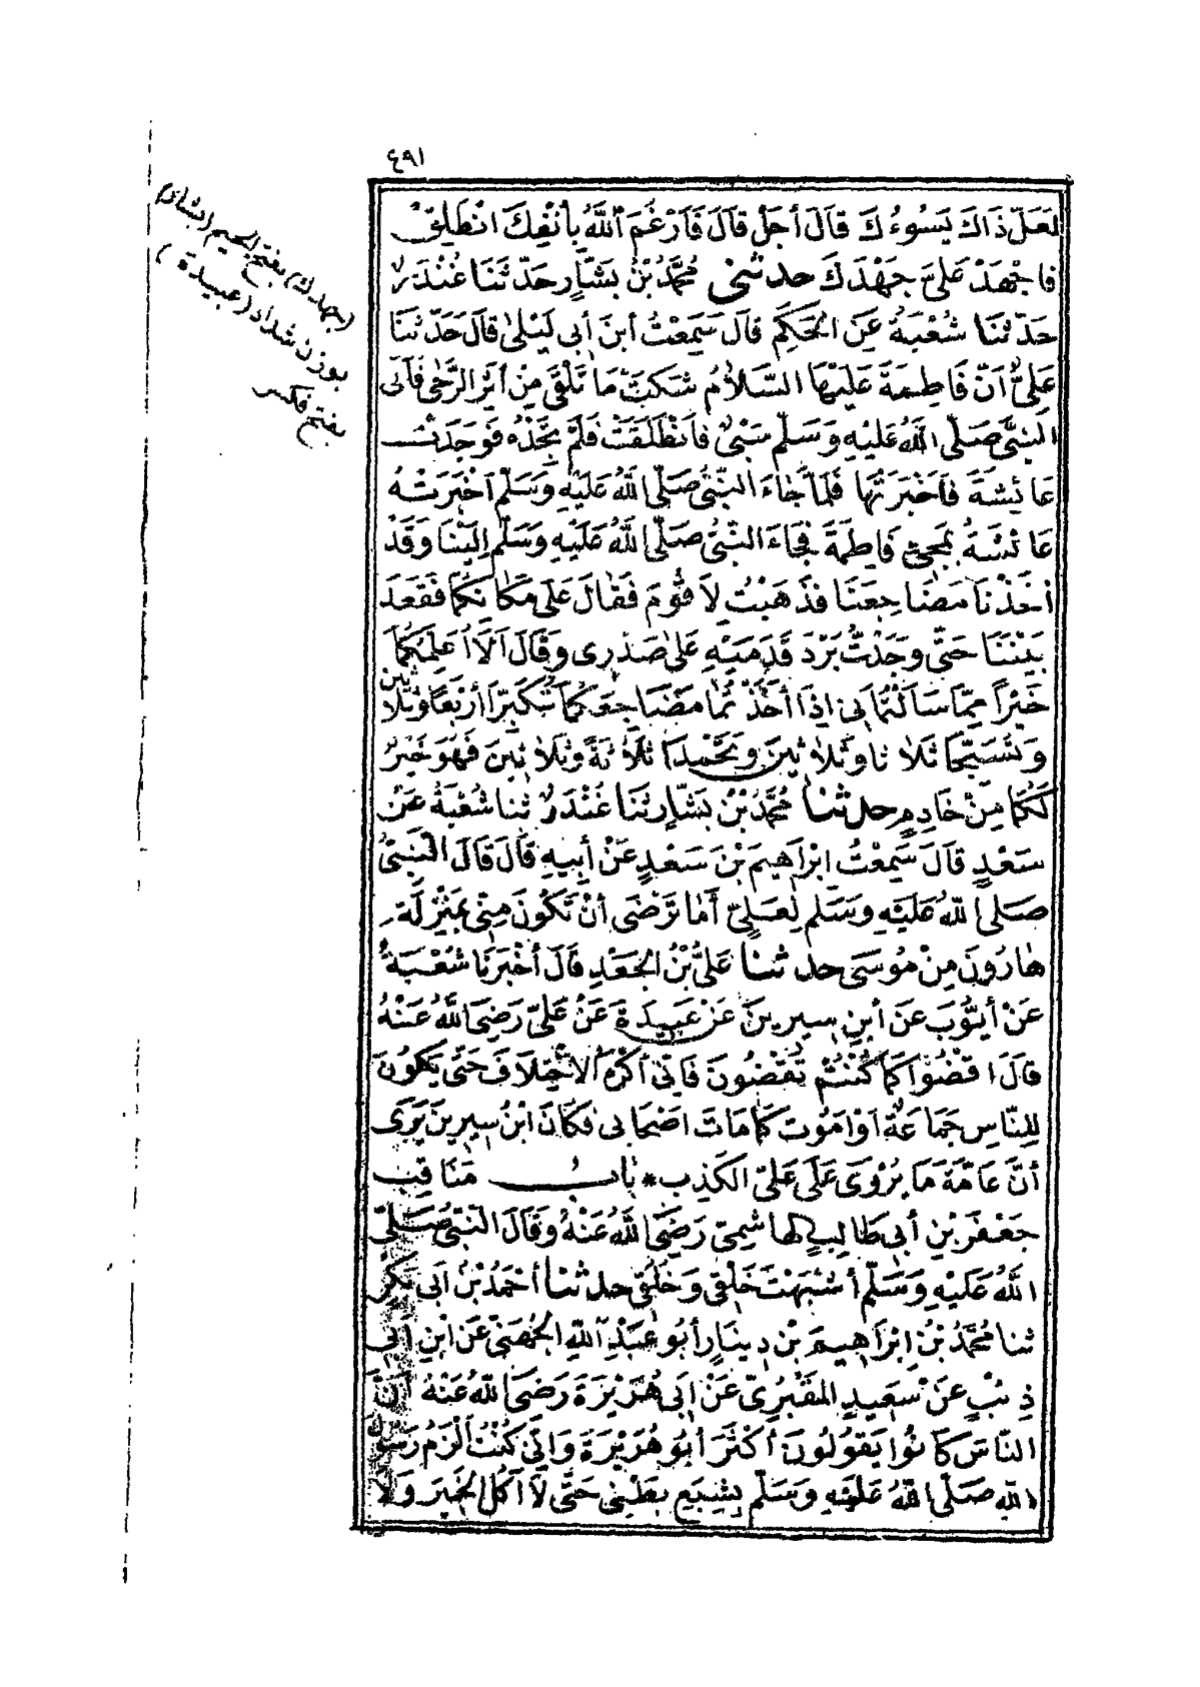 ٤٩١
لَعَلَّ ذَاكَ يَسُوءُكَ قَالَ أَجَلْ قَالَ فَأَرْغَمَ ٱللَّهُ بِأَنْفِكَ انْطَلِقْ
فَاجْهَدْ عَلَيَّ جَهْدَكَ حدثنى مُحَمَّدُ بْنُ بَشَّارٍ حَدَّثَنَا غُنْدَرٌ
حَدَّثَنَا شُعْبَةُ عَنِ الْحَكَمِ قَالَ سَمِعْتُ ابْنَ أَبِي لَيْلَىٰ قَالَ حَدَّثَنَا
عَلِيٌّ أَنَّ فَاطِمَةَ عَلَيْهَا السَّلَامُ شَكَتْ مَا تَلْقَى مِنْ أَثَرِ الرَّحٰى فَأَتَى
النَّبِيَّ صَلَّى اللَّهُ عَلَيْهِ وَسَلَّمَ سَبْيٌ فَانْطَلَقَتْ فَلَمْ تَجِدْهُ فَوَجَدَتْ
عَائِشَةَ فَأَخْبَرَتْهَا فَلَمَّا جَاءَ النَّبِيُّ صَلَّى اللَّهُ عَلَيْهِ وَسَلَّمَ أَخْبَرَتْهُ
عَائِشَةُ بِمَجِيءِ فَاطِمَةَ فَجَاءَ النَّبِيُّ صَلَّى اللَّهُ عَلَيْهِ وَسَلَّمَ إِلَيْنَا وَقَدْ
أَخَذْنَا مَضَاجِعَنَا فَذَهَبْتُ لِأَقُومَ فَقَالَ عَلَى مَكَانِكُمَا فَقَعَدَ
بَيْنَنَا حَتَّى وَجَدْتُ بَرْدَ قَدَمَيْهِ عَلَى صَدْرِى وَقَالَ أَلَا أُعَلِّمُكُمَا
خَيْرًا مِمَّا سَأَلْتُمَانِى إِذَا أَخَذْتُمَا مَضَاجِعَكُمَا تُكَبِّرَا أَرْبَعًا وَثَلَاثِينَ
وَتُسَبِّحَا ثَلَاثًا وَثَلَاثِينَ وَتَحْمِدَا ثَلَاثَةً وَثَلَاثِينَ فَهُوَ خَيْرٌ
لَكُمَا مِنْ خَادِمٍ حدثنا مُحَمَّدُ بْنُ بَشَّارٍ ثَنَا غُنْدَرٌ ثنا شُعْبَةُ عَنْ
سَعْدٍ قَالَ سَمِعْتُ إِبْرَاهِيمَ بْنَ سَعْدٍ عَنْ أَبِيهِ قَالَ قَالَ النَّبِيُّ
صَلَّى اللَّهُ عَلَيْهِ وَسَلَّمَ لِعَلِيٍّ أَمَا تَرْضَى أَنْ تَكُونَ مِنِّى بِمَنْزِلَةِ
هَارُونَ مِنْ مُوسَى حدثنا عَلِيُّ بْنُ الْجَعْدِ قَالَ أَخْبَرَنَا شُعْبَةُ
عَنْ أَيُّوبَ عَنِ ابْنِ سِيرِينَ عَنْ عَبِيدَةَ عَنْ عَلِيٍّ رَضِيَ اللَّهُ عَنْهُ
قَالَ اقْضُوا كَمَا كُنْتُمْ تَقْضُونَ فَإِنِّى أَكْرَهُ الِاخْتِلَافَ حَتَّى يَكُونَ
لِلنَّاسِ جَمَاعَةٌ أَوْ أَمُوتَ كَمَا مَاتَ أَصْحَابِى فَكَانَ ابْنُ سِيرِينَ يَرَى
أَنَّ عَامَّةَ مَا يُرْوَى عَلَى عَلِيٍّ الْكَذِبُ * بَابُ مَنَاقِبِ
جَعْفَرِ بْنِ أَبِى طَالِبٍ الهاشِمِيِّ رَضِيَ اللَّهُ عَنْهُ وَقَالَ النَّبِيُّ صَلَّى
اللَّهُ عَلَيْهِ وَسَلَّمَ أَشْبَهْتَ خَلْقِى وَخُلُقِى حدثنا أَحْمَدُ بْنُ أَبِى بَكْرٍ
ثنا مُحَمَّدُ بْنُ إِبْرَاهِيمَ بْنِ دِينَارٍ أَبُو عَبْدِ اللَّهِ الْجُهَنِيُّ عَنِ ابْنِ أَبِى
ذِئْبٍ عَنْ سَعِيدٍ المَقْبُرِيِّ عَنْ أَبِى هُرَيْرَةَ رَضِيَ اللَّهُ عَنْهُ أَنَّ
النَّاسَ كَانُوا يَقُولُونَ أَكْثَرَ أَبُو هُرَيْرَةَ وَإِنِّى كُنْتُ أَلْزَمُ رَسُولَ
اللَّهِ صَلَّى اللَّهُ عَلَيْهِ وَسَلَّمَ بِشِبَعِ بَطْنِى حَتَّى لَا آكُلُ الْخَمِيرَ وَلَا
(جهدك) بفتح الجيم (بشار)
بوزن شداد (عبيدة)
بفتح فكسر